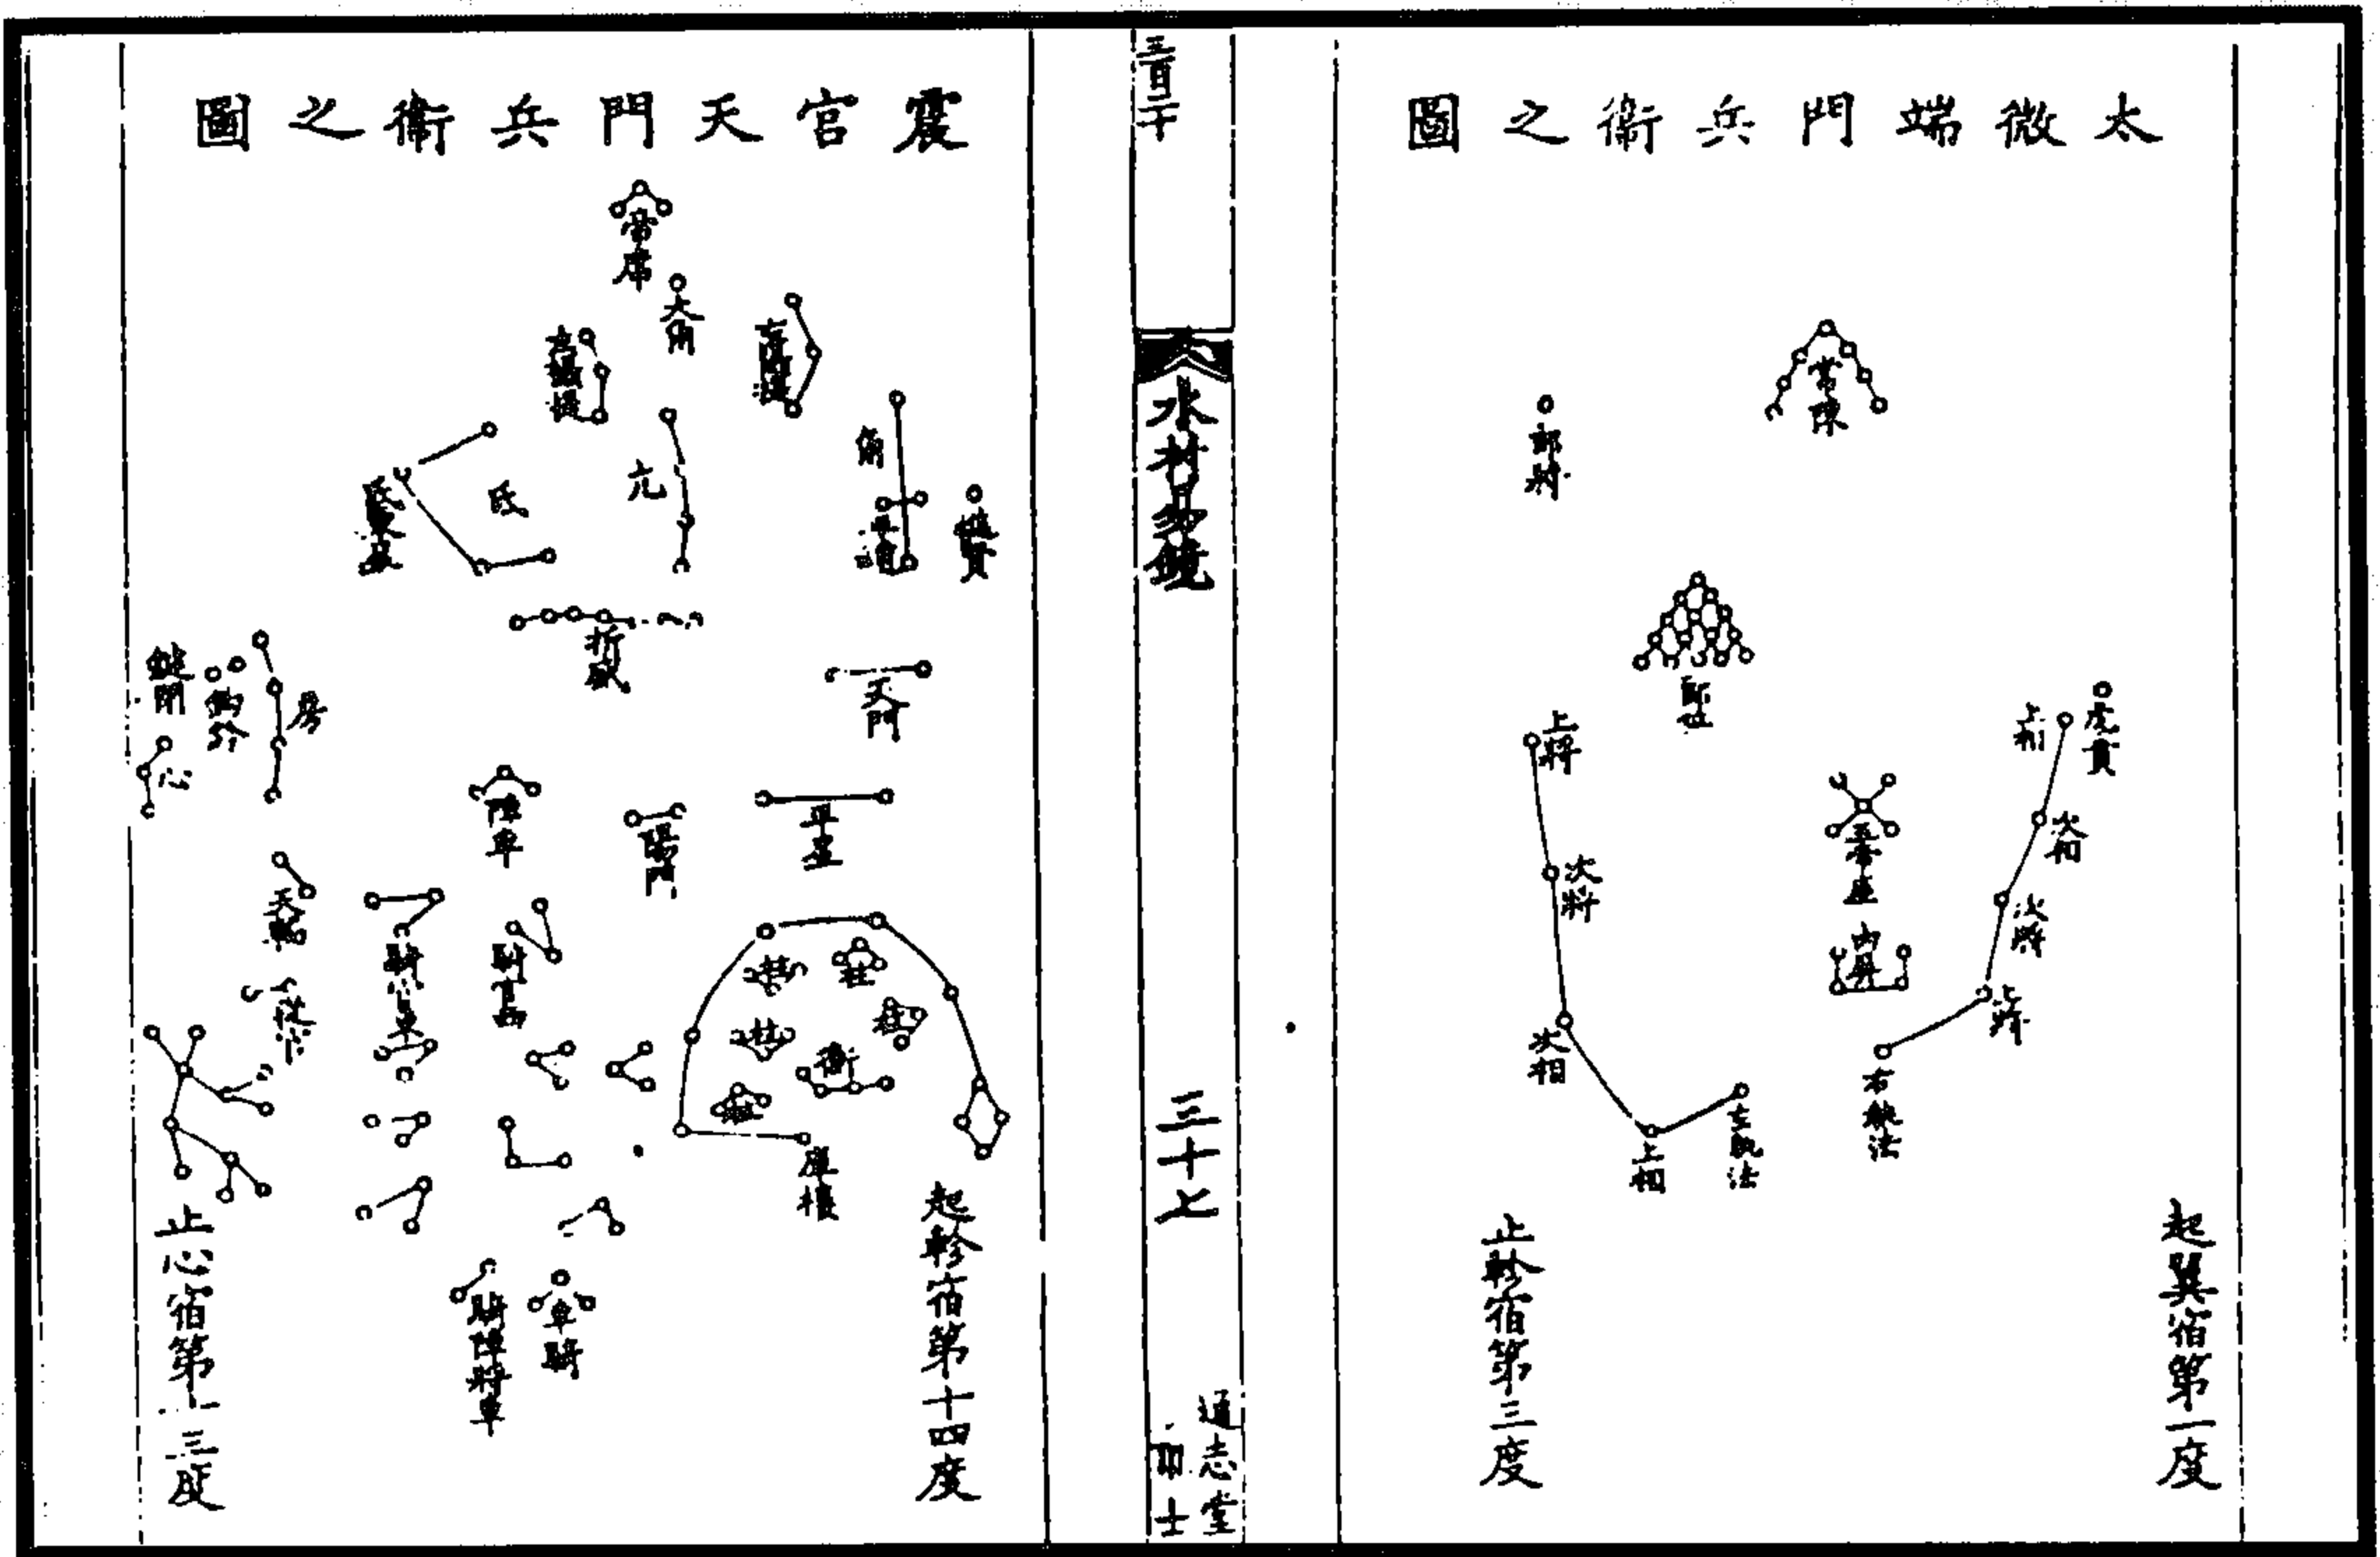 太微端門兵衛之圖
常陳
郎將
郎位
虎賁
上相
次相
次將
上將
右執法
五帝座
內屏
上將
次將
次相
上相
左執法
起翼宿第一度
止軫宿第三度
水村易鏡
三十七
通志堂
震官天門兵衛之圖
帝席
大角
右攝提
角
進賢
亢
氐
折威
天門
房
鉤鈐
鍵閉
心
陣車
陽門
平星
天輻
從官
騎官
柱
柱
柱
柱
衡
庫樓
車騎
騎陣將軍
起軫宿第十四度
止心宿第三度